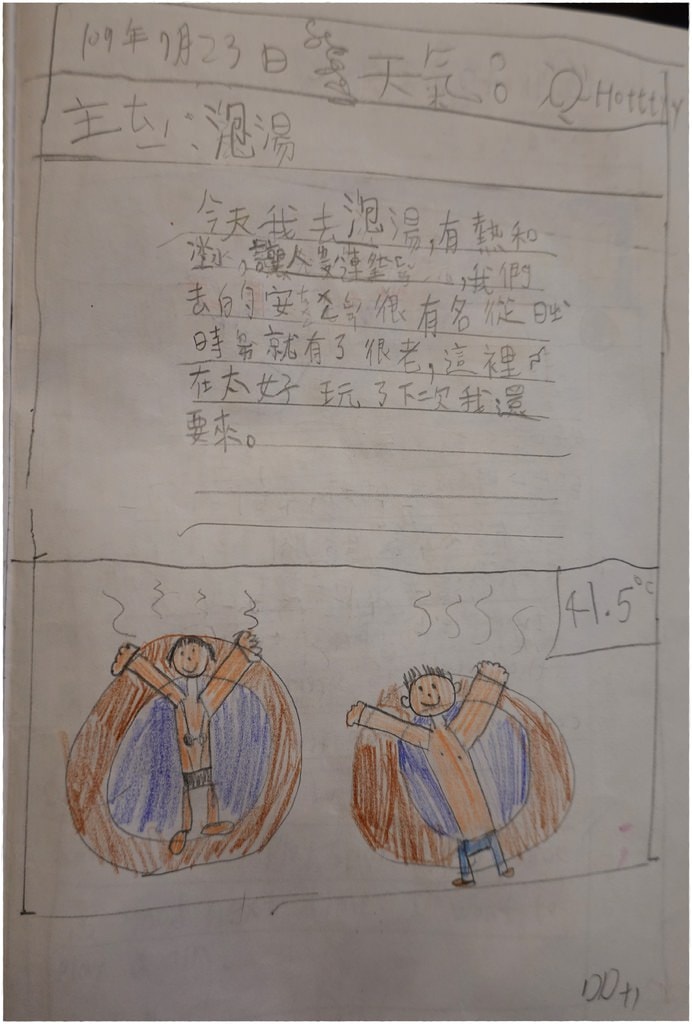 109年7月23日 天氣： Hottty
主 ：泡湯
今天我去泡湯,有熱和
水,讓人 連 ,我們
去的安 很有名從日
時 就有了很老,這裡
在太好玩了下次我還
要來。
41.5°C